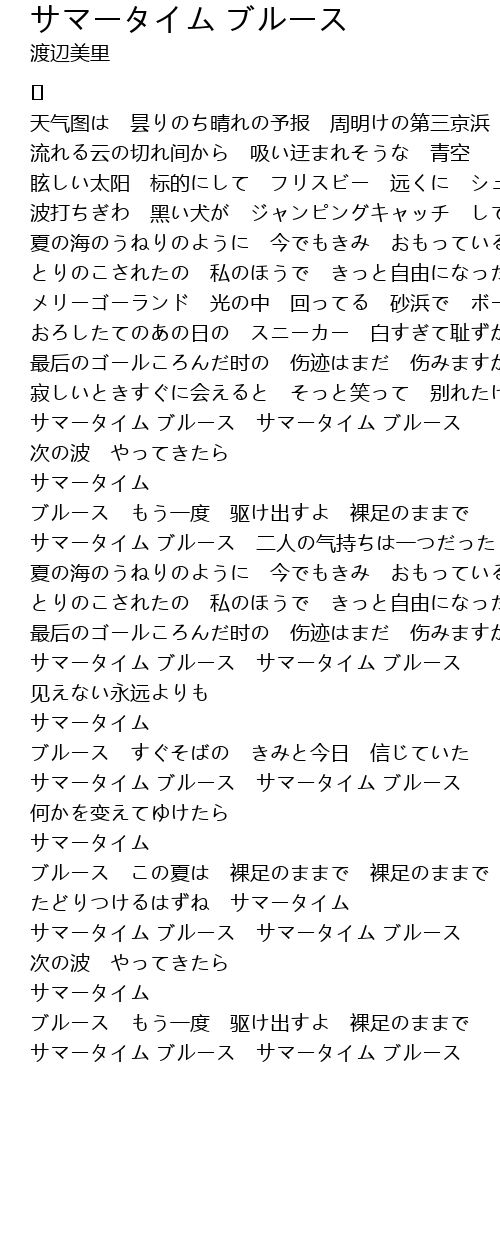 サマータイム ブルース
渡辺美里
天气图は　昙りのち晴れの予报　周明けの第三京浜
流れる云の切れ间から　吸い迂まれそうな　青空
眩しい太阳　标的にして　フリスビー　远くに　シュ
波打ちぎわ　黑い犬が　ジャンピングキャッチ　して
夏の海のうねりのように　今でもきみ　おもっている
とりのこされたの　私のほうで　きっと自由になった
メリーゴーランド　光の中　回ってる　砂浜で　ボー
おろしたてのあの日の　スニーカー　白すぎて耻ずか
最后のゴールころんだ时の　伤迹はまだ　伤みますか
寂しいときすぐに会えると　そっと笑って　别れたけ
サマータイム ブルース　サマータイム ブルース
次の波　やってきたら
サマータイム
ブルース　もう一度　驱け出すよ　裸足のままで
サマータイム ブルース　二人の气持ちは一つだった
夏の海のうねりのように　今でもきみ　おもっている
とりのこされたの　私のほうで　きっと自由になった
最后のゴールころんだ时の　伤迹はまだ　伤みますか
サマータイム ブルース　サマータイム ブルース
见えない永远よりも
サマータイム
ブルース　すぐそばの　きみと今日　信じていた
サマータイム ブルース　サマータイム ブルース
何かを变えてゆけたら
サマータイム
ブルース　この夏は　裸足のままで　裸足のままで
たどりつけるはずね　サマータイム
サマータイム ブルース　サマータイム ブルース
次の波　やってきたら
サマータイム
ブルース　もう一度　驱け出すよ　裸足のままで
サマータイム ブルース　サマータイム ブルース